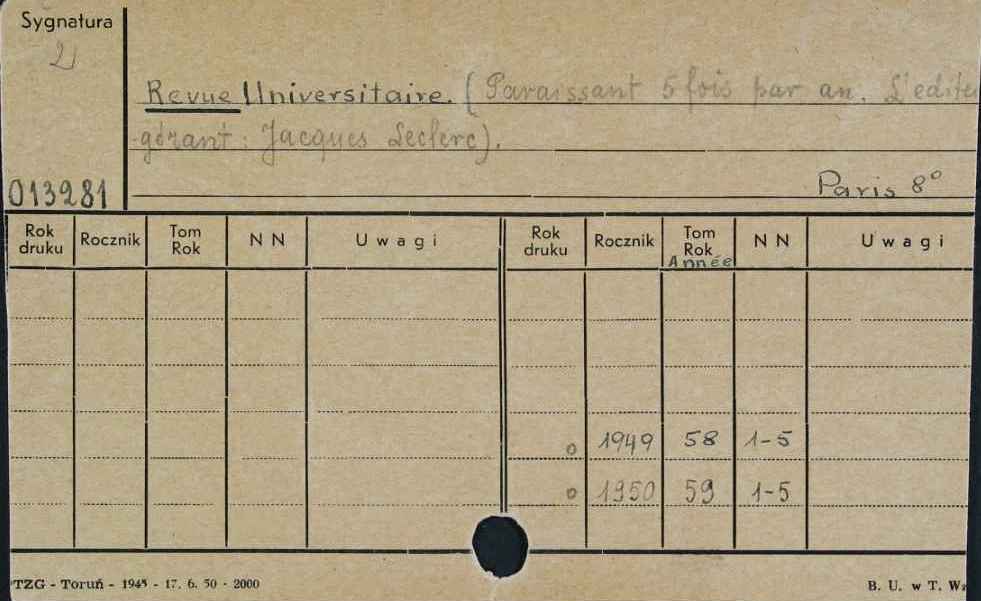 Sygnatura
2
Revue Universitaire. (Paraissant 5 fois par an. L'edite
-gérant: Jacques Leclerc).
013281 Paris 8°
Rok druku Rocznik Tom Rok N N Uwagi Rok druku Rocznik Tom Rok Année N N Uwagi
o 1949 58 1-5
o 1950 59 1-5
TZG - Toruń - 1945 - 17. 6. 50 - 2000 B. U. w T. Wz